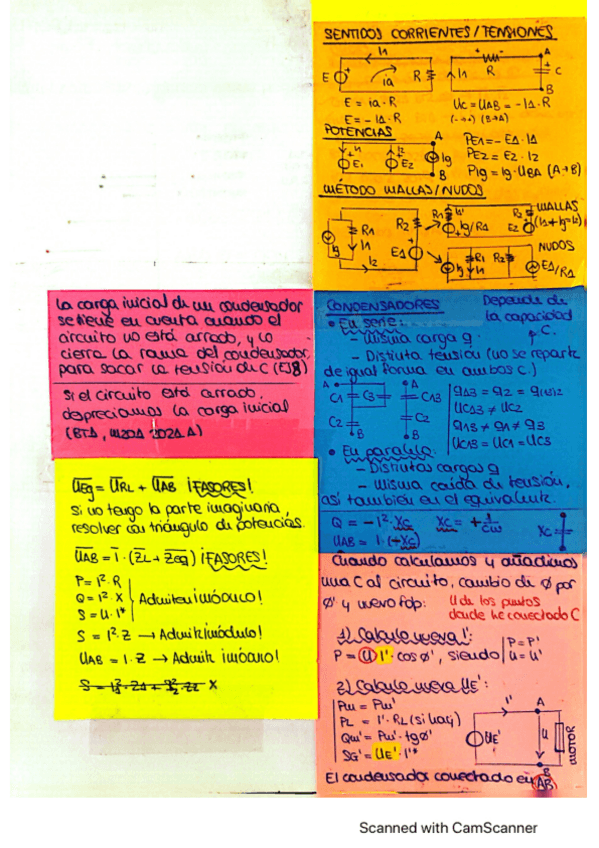 SENTIDOS CORRIENTES/TENSIONES
I1
E
ia
R
I1
R
A
C
B
E = ia·R
E = -I1·R
UC = UAB = -I1·R
(-→+) (B→A)
POTENCIAS
I1
E1
I2
E2
Ig
A
B
PE1 = -E1·I1
PE2 = E2·I2
PIg = Ig·UBA (A→B)
MÉTODO MALLAS/NUDOS
Ig
R1
I1
R2
E1
I2
R1
I1'
Ig/R1
R2
E2
MALLAS
(I1+Ig=I2)
NUDOS
Ig
R1
I1
R2
E1/R1
La carga inicial de un condensador
se tiene en cuenta cuando el
circuito no está cerrado, y lo
cierra la rama del condensador,
para sacar la tensión de C (EJ8)
Si el circuito está cerrado,
despreciamos la carga inicial
CONDENSADORES
Depende de
la capacidad
C.
• En serie:
- Misma carga q.
- Distinta tensión (no se reparte
de igual forma en ambos C.)
A
C1
C3
C2
B
A
C13
C2
B
q13 = q2 = q1312
UC13 ≠ UC2
q13 ≠ q1 ≠ q3
UC13 = UC1 = UC3
• En paralelo:
- Distintas cargas q
- Misma caída de tensión,
así también en el equivalente.
Q = -I²·XC
XC = +1/Cω
UAB = I·(-XC)
XC =
UEg = URL + UAB ¡FASORES!
Si no tengo la parte imaginaria,
resolver con triángulo de potencias.
UAB = I·(ZL + Zeq) ¡FASORES!
P = I²·R
Q = I²·X
S = U·I*
Admiten módulo!
S = I²·Z → Admite módulo!
UAB = I·Z → Admite módulo!
X
Cuando calculamos y añadimos
una C al circuito, cambio de Ø por
Ø' y nuevo fdp:
U de los puntos
donde he conectado C
1) Calculo nueva I':
P = U I'·cosØ', siendo
P = P'
U = U'
2) Calculo nueva UE':
Pm = Pm'
PL = I'·RL (si hay)
Qm' = Pm'·tgØ'
SG' = UE'·I'*
I'
A
UE'
U
MOTOR
B
El condensador conectado en AB
Scanned with CamScanner